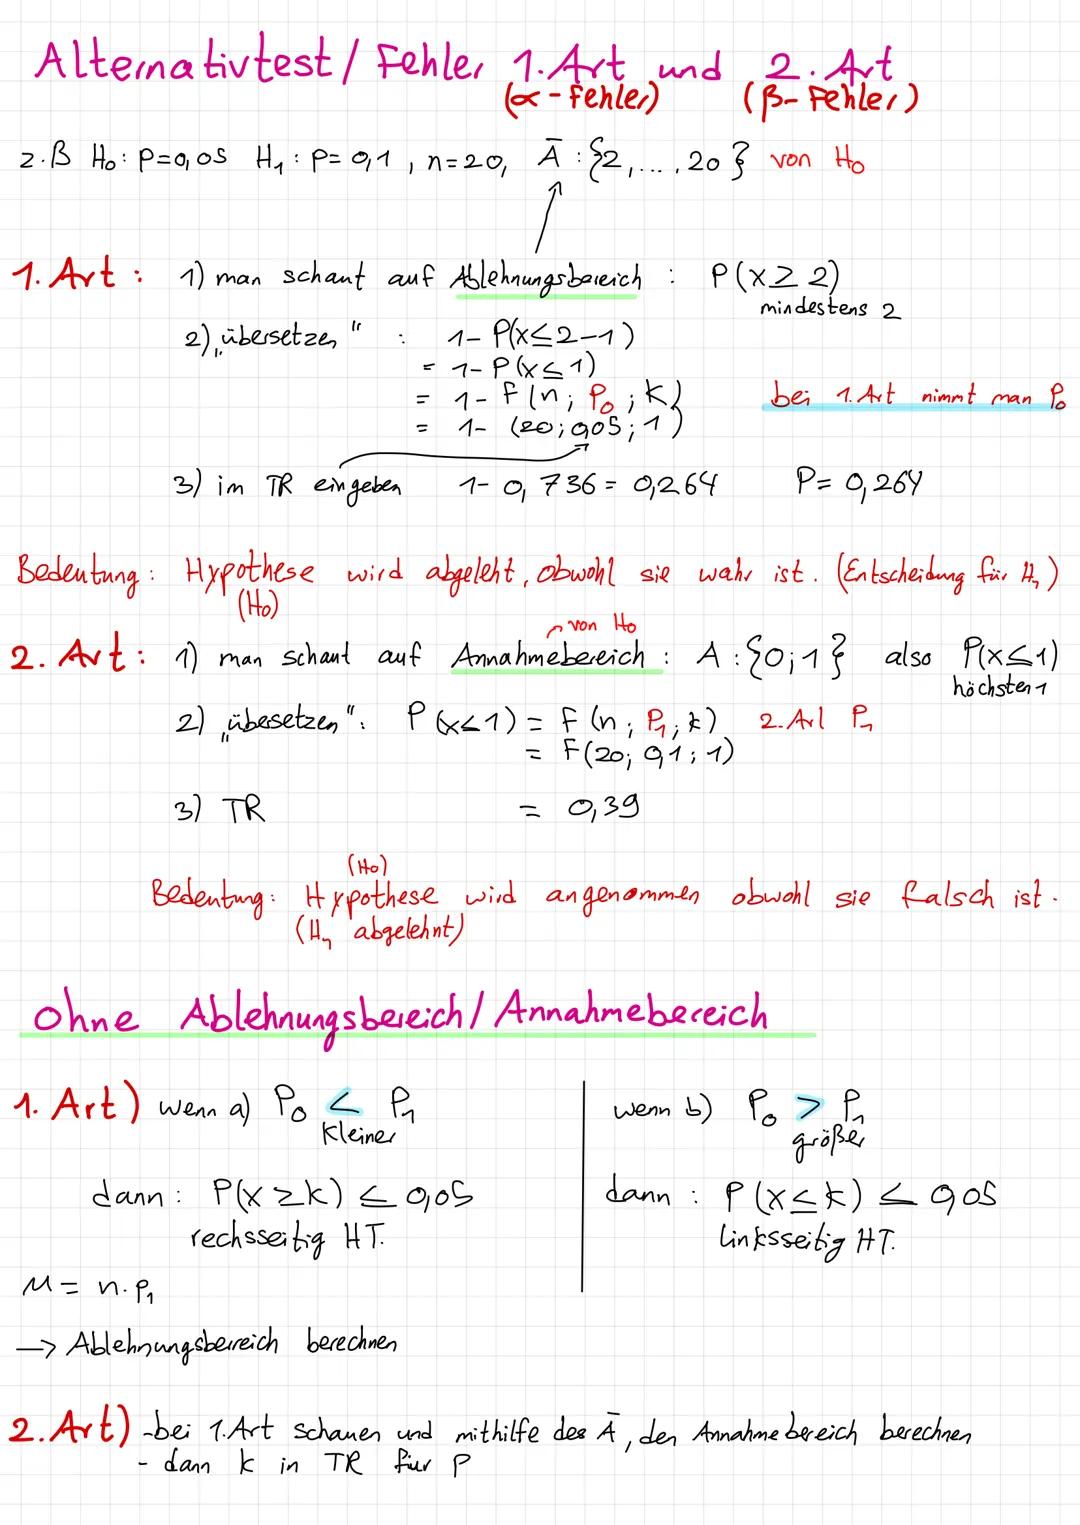 Alternativtest / Fehler 1. Art und 2. Art
(α - Fehler) (β - Fehler)
z.B H₀: p=0,05 H₁: p=0,1, n=20, Ā: {2,...,20} von H₀
1. Art: 1) man schaut auf Ablehnungsbereich : P(X≥2)
mindestens 2
2) „übersetzen" : 1- P(X≤2-1)
= 1- P(X≤1)
= 1- F(n; P₀; k) bei 1. Art nimmt man P₀
= 1- (20; 0,05; 1)
3) im TR eingeben 1- 0,736 = 0,264 P= 0,264
Bedeutung: Hypothese wird abgeleht, obwohl sie wahr ist. (Entscheidung für H₁)
(H₀)
von H₀
2. Art: 1) man schaut auf Annahmebereich : A: {0;1} also P(X≤1)
höchsten 1
2) „übersetzen": P(X≤1) = F(n; P₁; k) 2. Art P₁
= F(20; 0,1; 1)
3) TR = 0,39
(H₀)
Bedeutung: Hypothese wird angenommen obwohl sie falsch ist.
(H₁ abgelehnt)
Ohne Ablehnungsbereich / Annahmebereich
1. Art) wenn a) P₀ < P₁
kleiner
dann: P(X≥k) ≤ 0,05
rechsseitig HT.
wenn b) P₀ > P₁
größer
dann: P(X≤k) ≤ 0,05
linksseitig HT.
μ = n·P₁
→ Ablehnungsbereich berechnen
2. Art) - bei 1. Art schauen und mithilfe des Ā, den Annahmebereich berechnen
- dann k in TR für P